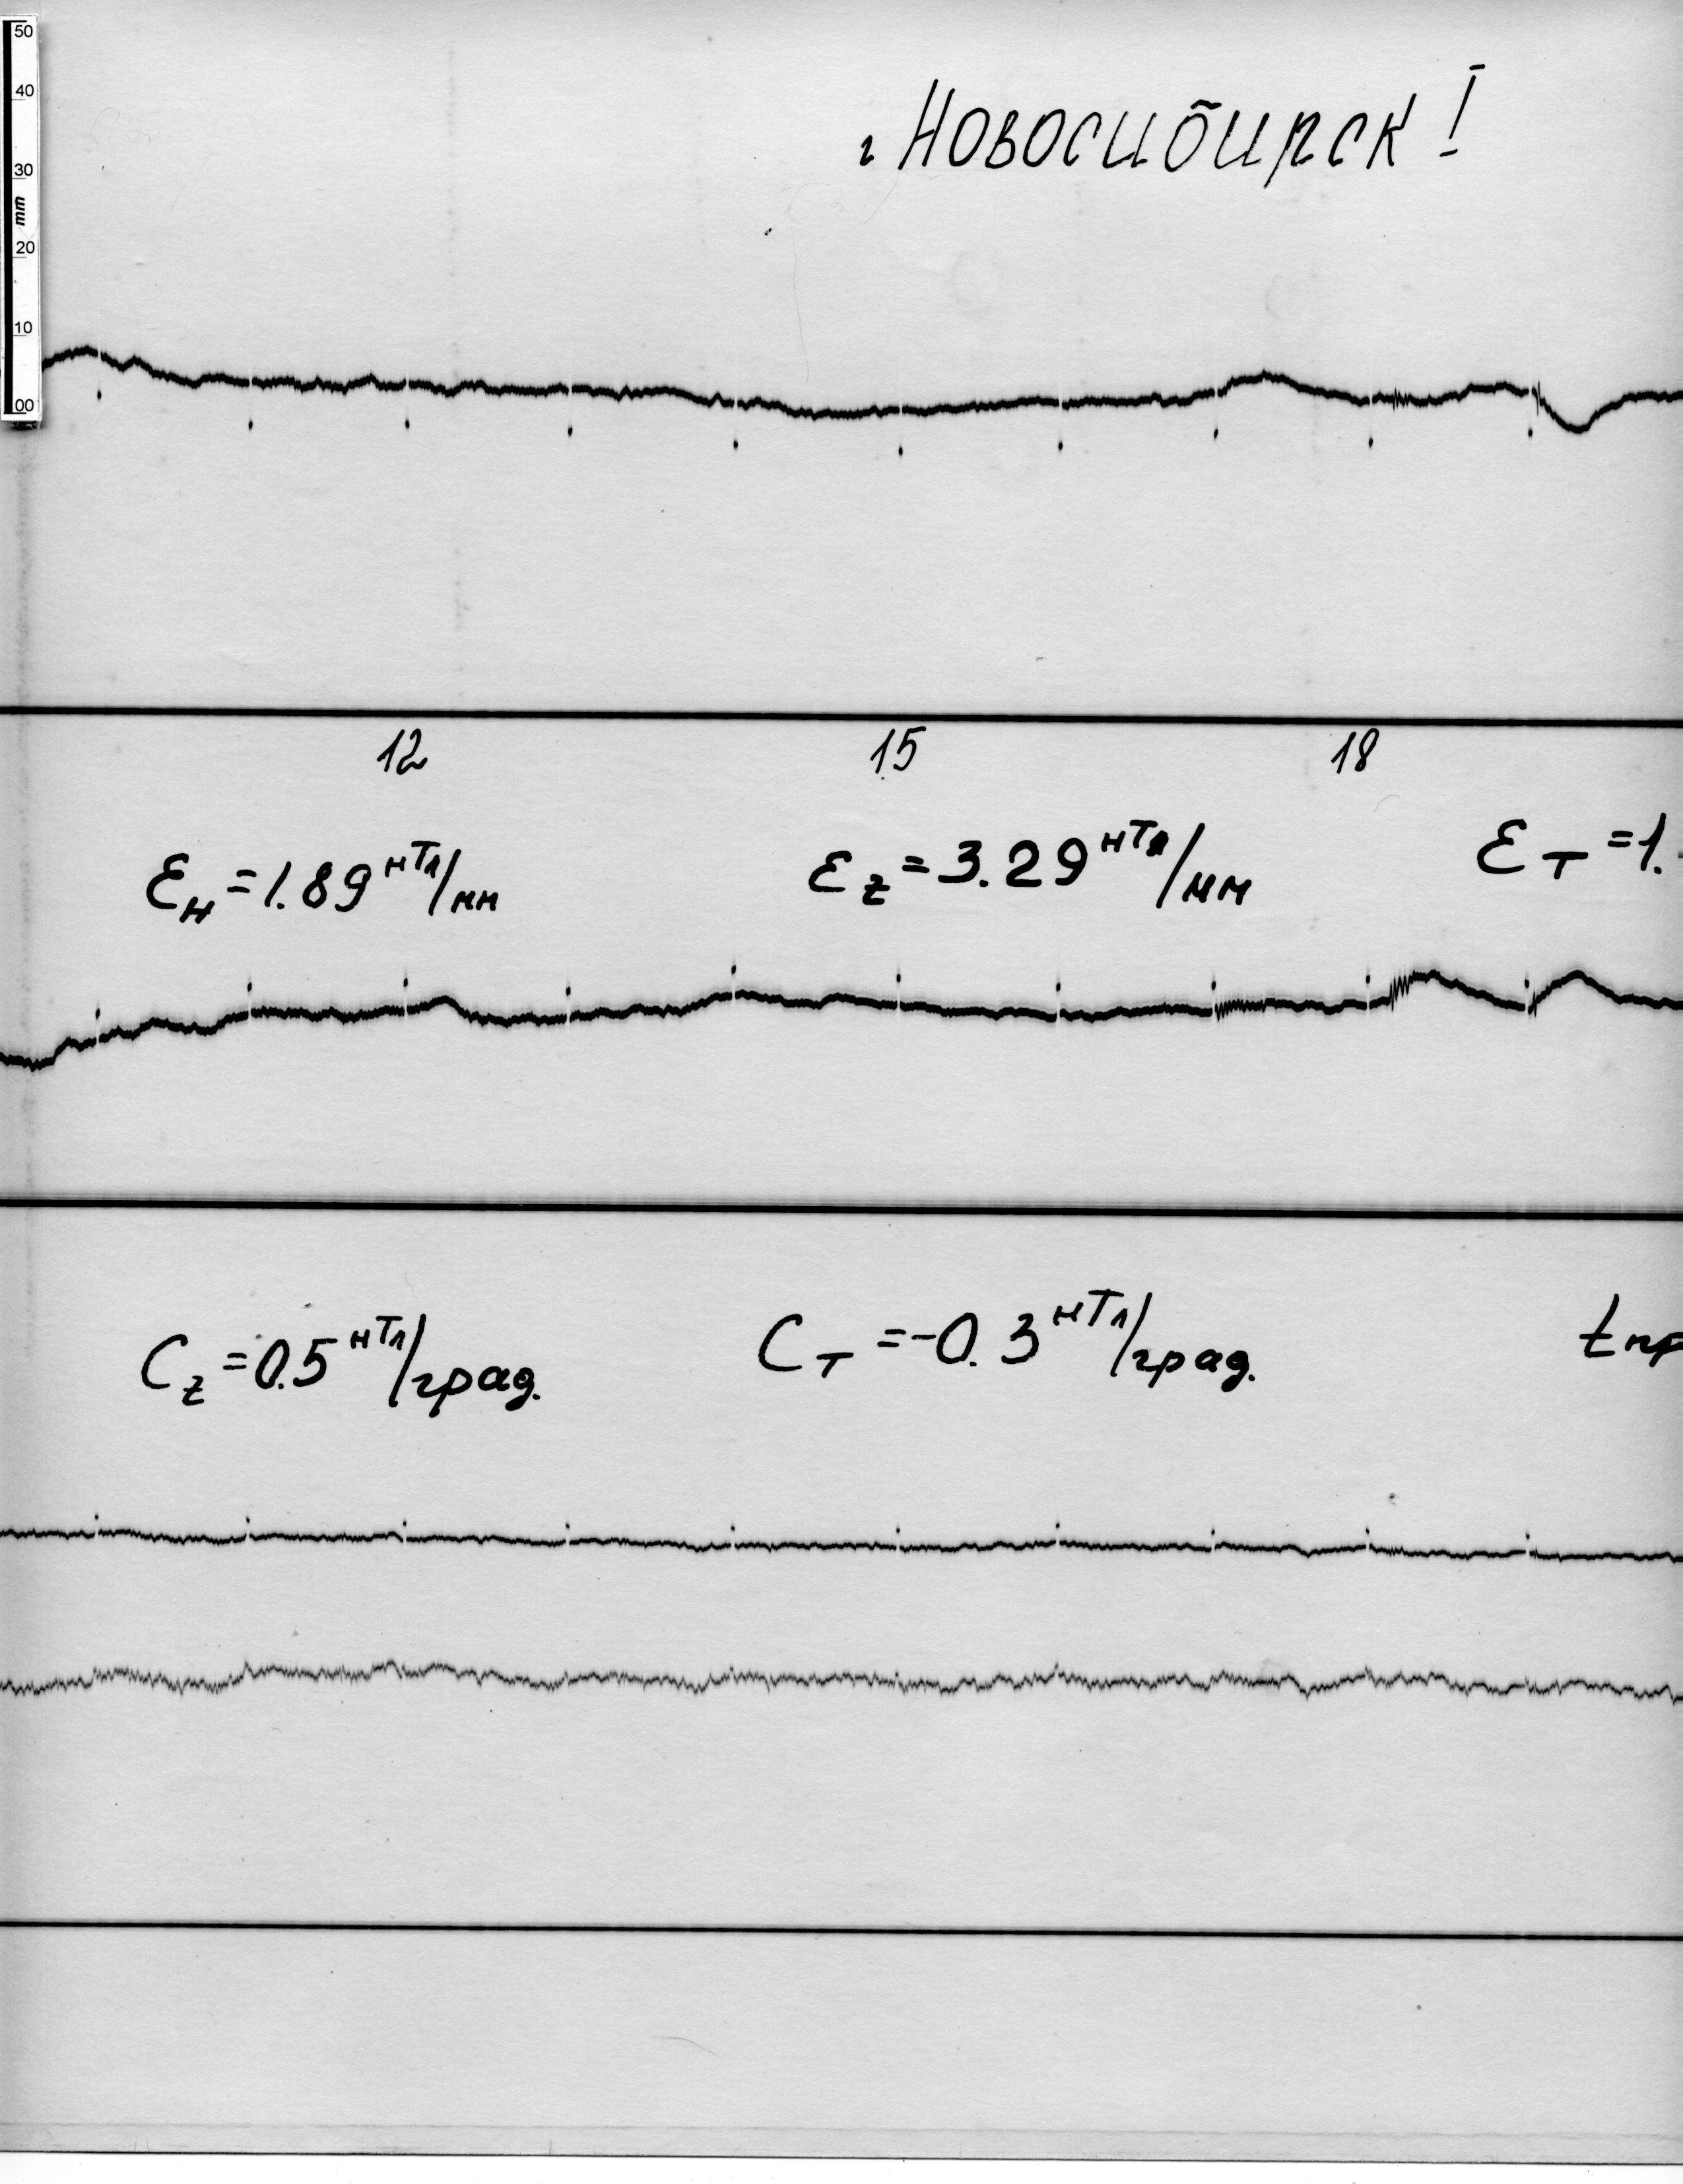 50
40
30
mm
20
10
00
г Новосибирск!
12 15 18
Ɛн = 1.89 нТл/мм Ɛz = 3.29 нТл/мм Ɛт = 1.
Cz = 0.5 нТл/град. Cт = -0.3 нТл/град. tпр